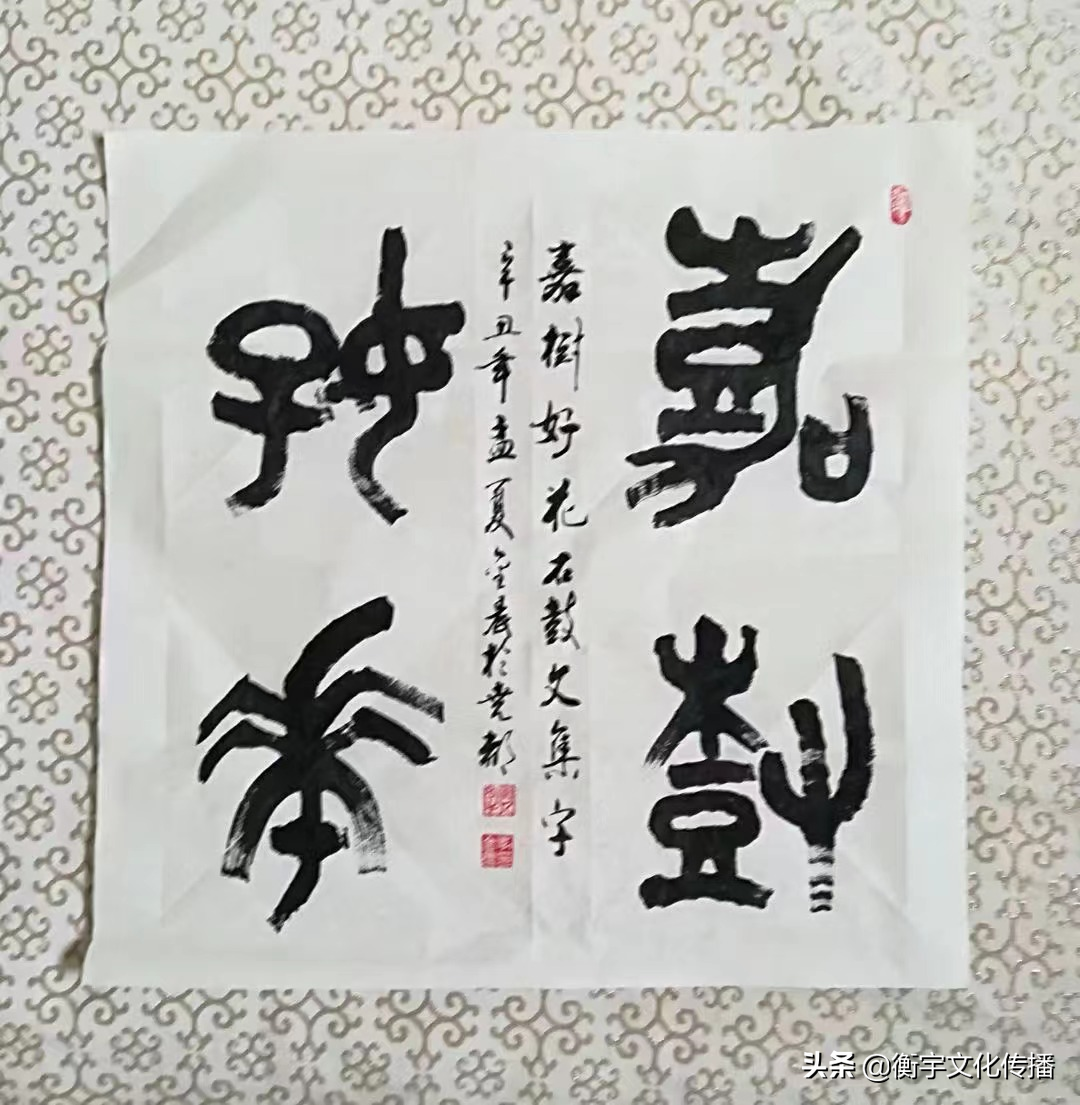 嘉樹
好花
嘉樹好花石鼓文集字
辛丑年孟夏金晨於堯都
头条 @衡宇文化传播